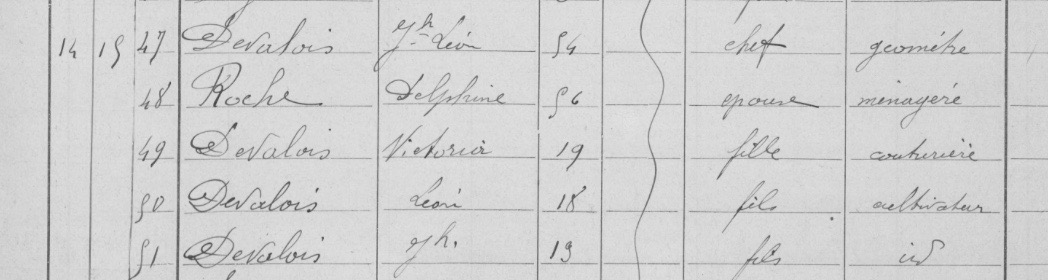 14 15 47 Devalois Jh Léon 54 chef géomètre
48 Roche Delphine 56 epouse ménagère
49 Devalois Victoria 19 fille couturière
50 Devalois Léon 18 fils cultivateur
51 Devalois Jh. 13 fils id